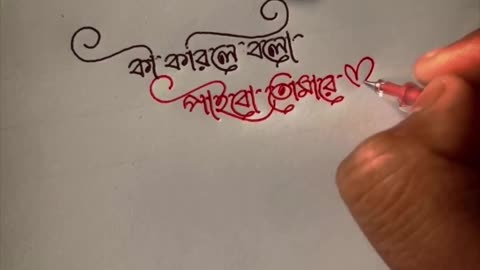 কী করিলে বলো
পাইবো তোমারে